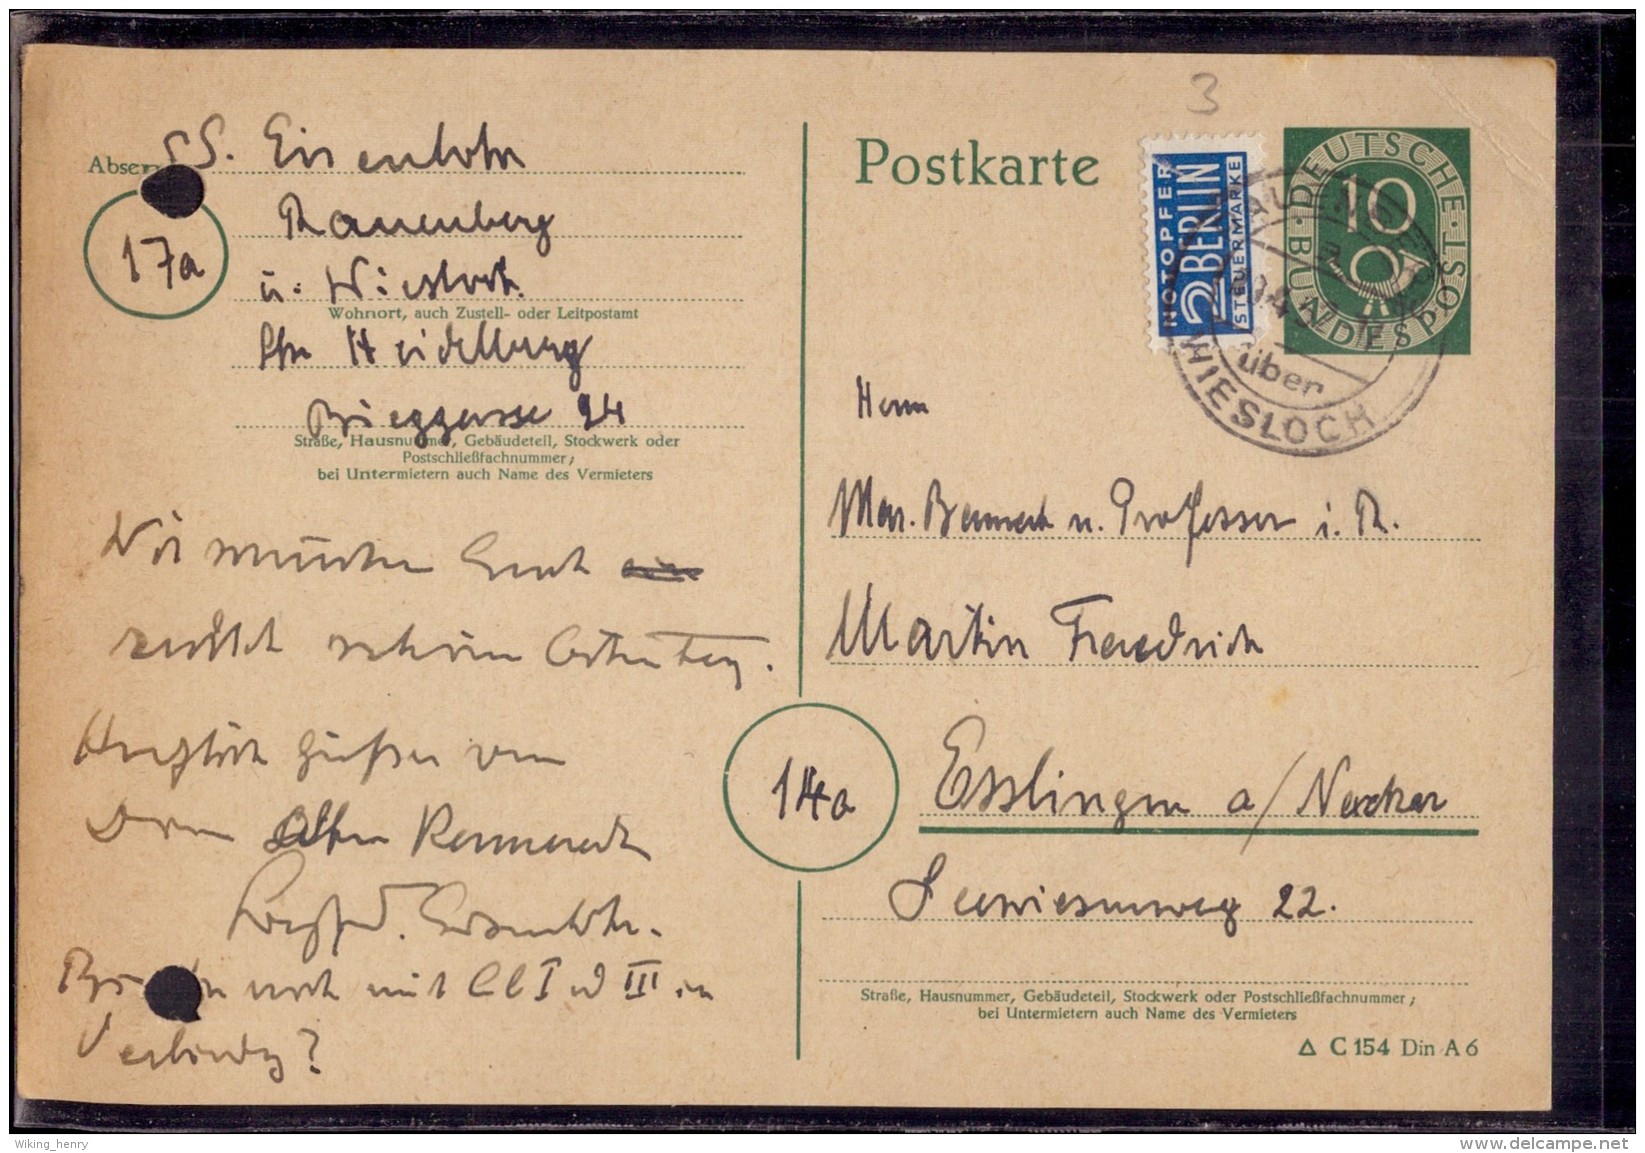 S. Eisenlohr
Absen
Rauenberg
17a
ü. Wiesloch
Wohnort, auch Zustell- oder Leitpostamt
Heidelberg
Brieggasse 24
Straße, Hausnummer, Gebäudeteil, Stockwerk oder
Postschließfachnummer;
bei Untermietern auch Name des Vermieters
Wir wünschen Euch
recht schöne Ostertag.
Herzlich grüßen von
Eisenlohr.
noch mit Cl I III in
Verbindg?
3
Postkarte
NOTOPFER
2 BERLIN
STEUERMARKE
DEUTSCHE BUNDESPOST
10
über
WIESLOCH
Herrn
u. Professor i. R.
Martin Friedrich
14a
Esslingen a/Neckar
Seewiesenweg 22.
Straße, Hausnummer, Gebäudeteil, Stockwerk oder Postschließfachnummer;
bei Untermietern auch Name des Vermieters
△ C 154 Din A 6
Wiking_henry
www.delcampe.net